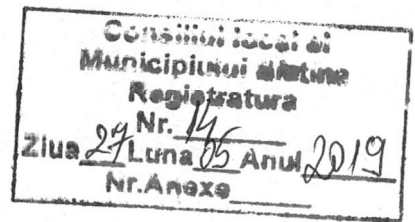 Consiliul local al
Municipiului Slatina
Registratura
Nr. 14
Ziua 27 Luna 05 Anul 2019
Nr.Anexe